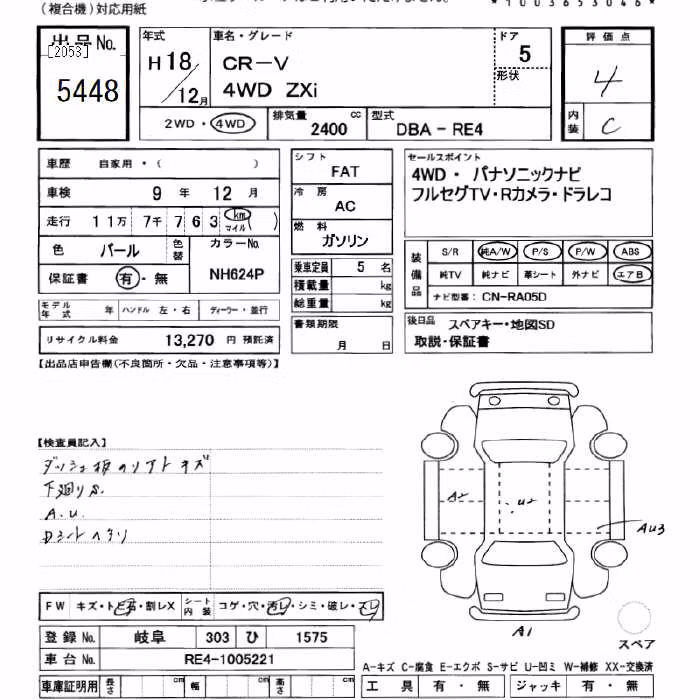 (複合機)対応用紙
*1003653046*
出品No.
[2053]
5448
年式
H18/12月
車名・グレード
CR-V
4WD ZXi
ドア
5
形状
評価点
4
内装
C
2WD・4WD
排気量
2400 cc
型式
DBA-RE4
車歴 自家用・( )
車検 9年 12月
走行 11万 7千 763 km マイル( )
色 パール 色替
カラーNo.
NH624P
保証書 有・無
モデル年式 年 ハンドル 左・右 ディーラー・並行
リサイクル料金 13,270円 預託済
シフト
FAT
冷房
AC
燃料
ガソリン
乗車定員 5名
積載量 kg
総重量 kg
書類期限
月 日
セールスポイント
4WD・ パナソニックナビ
フルセグTV・Rカメラ・ドラレコ
装備品
S/R 純A/W P/S P/W ABS
純TV 純ナビ 革シート 外ナビ エアB
ナビ型番: CN-RA05D
後日品 スペアキー・地図SD
取説・保証書
【出品店申告欄(不良箇所・欠品・注意事項等)】
【検査員記入】
下廻りS.
A.U.
FW キズ・トビ石・割レX シート内装 コゲ・穴・汚レ・シミ・破レ・スレ
登録No. 岐阜 303 ひ 1575
車台No. RE4-1005221
車庫証明用 長さ cm 幅 cm 高さ cm
A2
U2
AU3
A1
スペア
A-キズ C-腐食 E-エクボ S-サビ U-凹ミ W-補修 XX-交換済
工具 有・無 ジャッキ 有・無